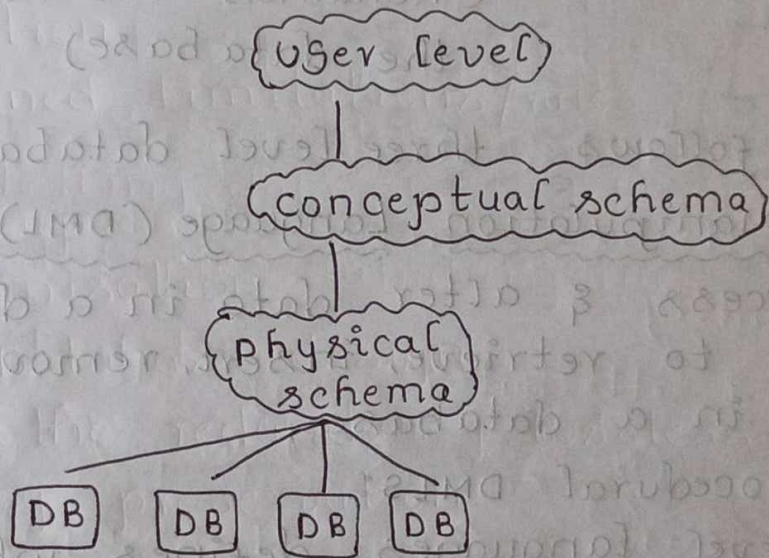 User level
conceptual schema
physical
schema
DB DB DB DB